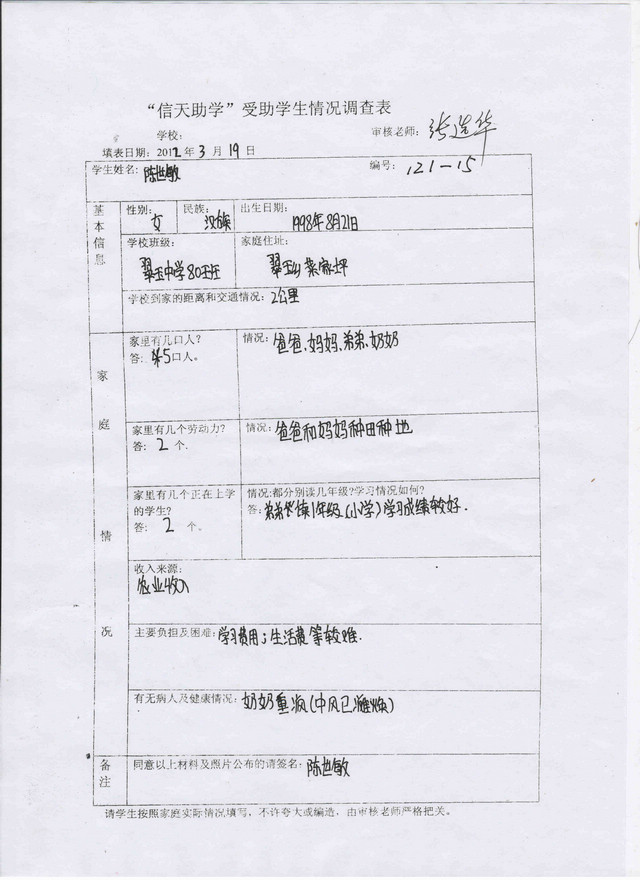 “信天助学”受助学生情况调查表
学校: 审核老师: 张连华
填表日期: 2012年3月19日
学生姓名: 陈世敏 编号: 121—15
基本信息
性别: 女 民族: 汉族 出生日期: 1998年8月21日
学校班级: 翠玉中学80班 家庭住址: 翠玉乡 家坪
学校到家的距离和交通情况: 2公里
家庭情况
家里有几口人? 情况: 爸爸、妈妈、弟弟、奶奶
答: 5口人。
家里有几个劳动力? 情况: 爸爸和妈妈种田种地
答: 2个.
家里有几个正在上学的学生? 情况:都分别读几年级?学习情况如何?
答: 2个。 答: 弟弟读1年级(小学)学习成绩较好.
收入来源:
农业收入
主要负担及困难: 学习费用;生活费等较难.
有无病人及健康情况: 奶奶重病(中风已瘫痪)
备注
同意以上材料及照片公布的请签名: 陈世敏
请学生按照家庭实际情况填写,不许夸大或编造,由审核老师严格把关。